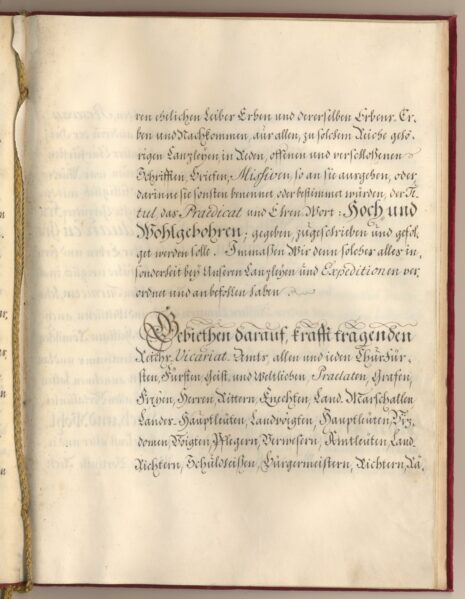 ren ehelichen Leiber Erben und dererselben Erbens Er-
ben und Nachkommen, aus allen, zu solchem Reiche gehö-
rigen Canzleyen, in Reden, offenen und verschloßenen
Schrifften, Briefen, Missiven, so an sie ausgehen, oder
darinne sie sonsten benennet oder bestimmet würden, der Ti-
tul, das Praedicat und Ehren Wort: Hoch und
Wohlgebohren; gegeben, zugeschrieben und gefol-
get werden solle. Immaßen Wir denn solches alles in-
sonderheit bey Unseren Canzleyen und Expeditionen ver-
ordnet und anbefohlen haben
Gebiethen darauf, krafft tragenden
Reichs Vicariat Amts, allen und ieden ChurFür-
sten, Fürsten, Geist und Weltlichen Praelaten, Grafen,
Freyen, Herren, Rittern, Knechten, Land Marschallen
Landes Hauptleuten, Landvoigten, Hauptleuten, Viz-
domen, Voigten, Pflegern, Verwesern, Amtleuten, Land
Richtern, Schuldheißen, Bürgermeistern, Richtern, Rä-